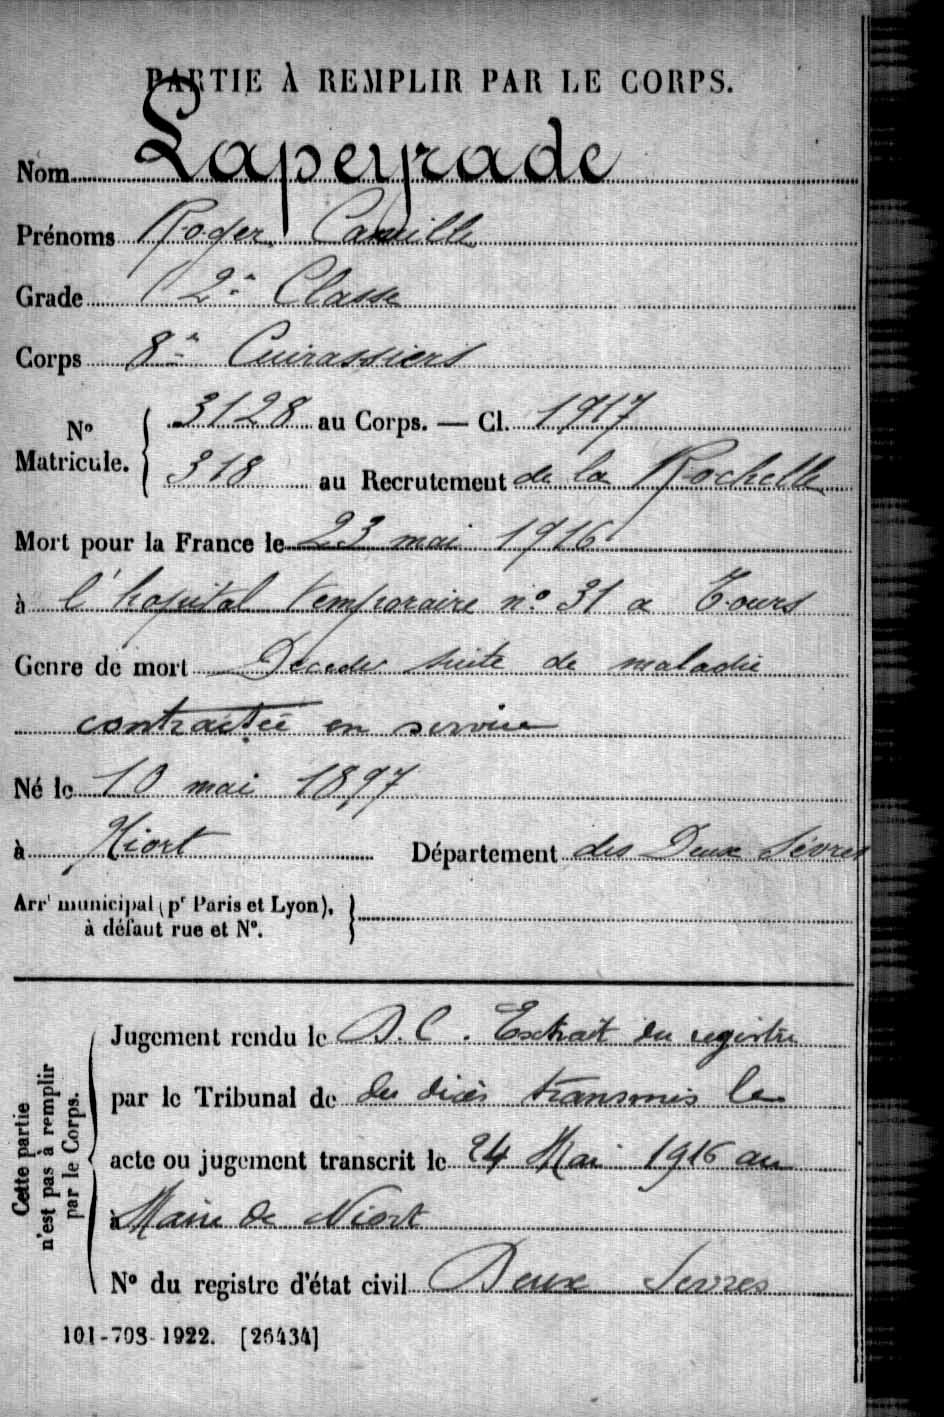 PARTIE À REMPLIR PAR LE CORPS.
Nom Lapeyrade
Prénoms Roger Camille
Grade 2e Classe
Corps 8e Cuirassiers
No Matricule. 3128 au Corps. — Cl. 1917
318 au Recrutement de la Rochelle
Mort pour la France le 23 mai 1916
à l'hopital temporaire n° 31 a Tours
Genre de mort Décédé suite de maladie
contractée en service
Né le 10 mai 1897
à Niort Département des Deux Sèvres
Arrt municipal (pr Paris et Lyon),
à défaut rue et N°.
Cette partie
n'est pas à remplir
par le Corps.
Jugement rendu le D.C. Extrait du registre
par le Tribunal de du décès transmis le
acte ou jugement transcrit le 24 Mai 1916 au
à Maire de Niort
N° du registre d'état civil Deux Sevres
101-708-1922. [26434]